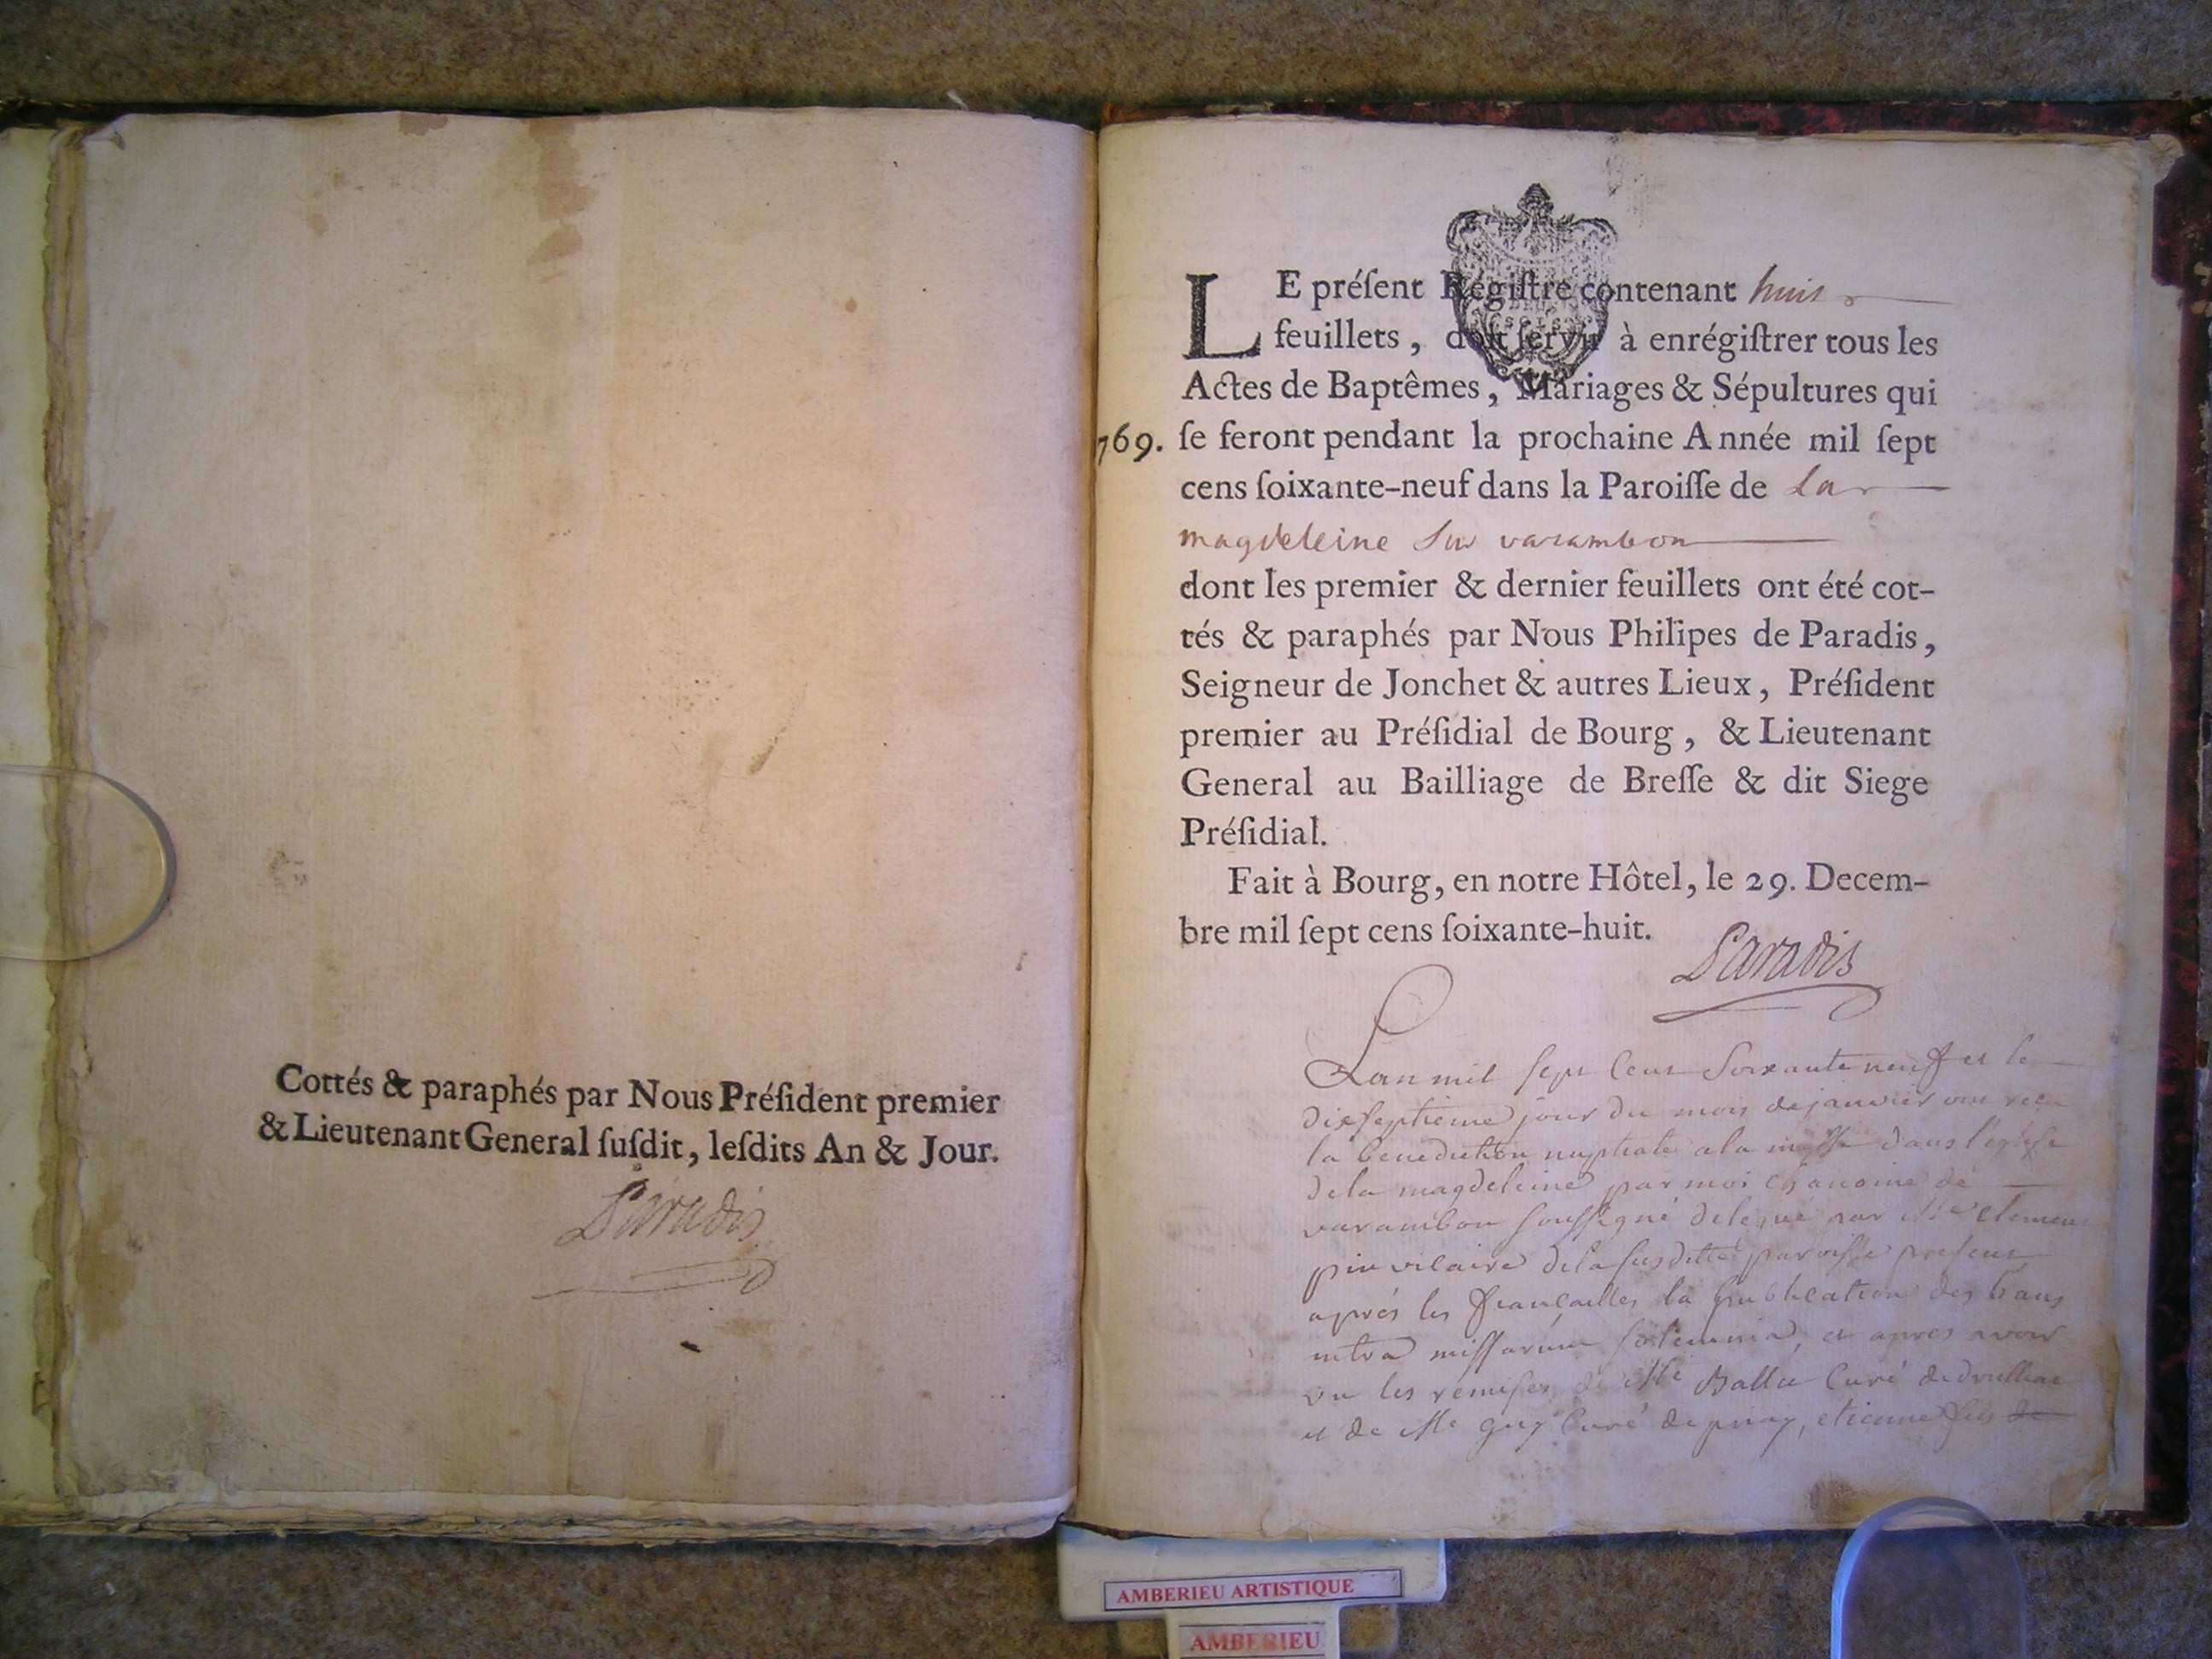 Cottés & paraphés par Nous Préſident premier
& Lieutenant General ſuſdit, leſdits An & Jour.
Paradis
LE préſent Régiſtre contenant huit
feuillets, doit ſervir à enrégiſtrer tous les
Actes de Baptêmes, Mariages & Sépultures qui
769. ſe feront pendant la prochaine Année mil ſept
cens ſoixante-neuf dans la Paroiſſe de La
magdeleine Sur varambon
dont les premier & dernier feuillets ont été cot-
tés & paraphés par Nous Philipes de Paradis,
Seigneur de Jonchet & autres Lieux, Préſident
premier au Préſidial de Bourg, & Lieutenant
General au Bailliage de Breſſe & dit Siege
Préſidial.
Fait à Bourg, en notre Hôtel, le 29. Decem-
bre mil ſept cens ſoixante-huit.
Paradis
Lan mil sept Cent Soixante neuff et le
dixseptieme jour du mois de janvier ont reçu
la benediction nuptiale a la messe dans l'eglise
de la magdeleine par moi chanoine de
varambon soussigné delegué par Me clement
pin vicaire de la susditte paroisse present
aprés les fiancailles la publication des bans
intra missarum solemnia, et apres avoir
vu les remises de Me Ballu Curé de druillat
et de Me guy Curé de priay, etienne fils de
AMBERIEU ARTISTIQUE
AMBERIEU